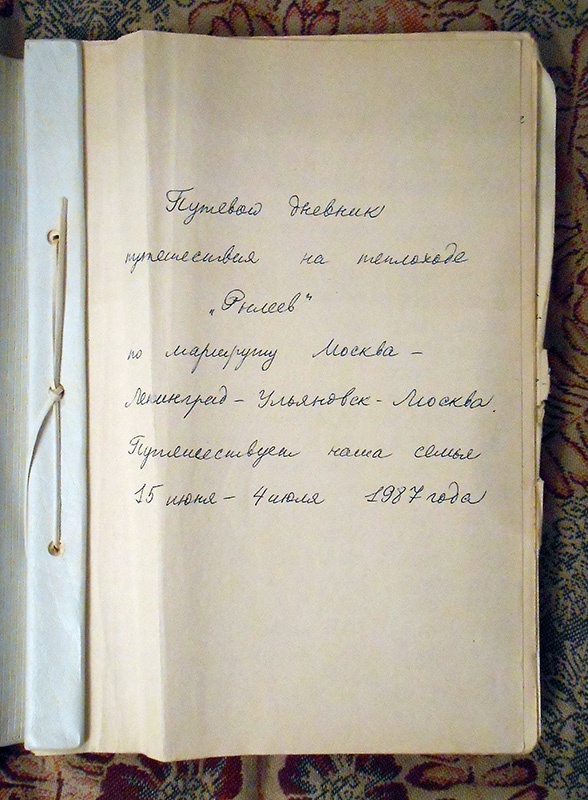 Путевой дневник
путешествия на теплоходе
„Рылеев"
по маршруту Москва –
Ленинград – Ульяновск – Москва.
Путешествует наша семья
15 июня – 4 июля 1987 года